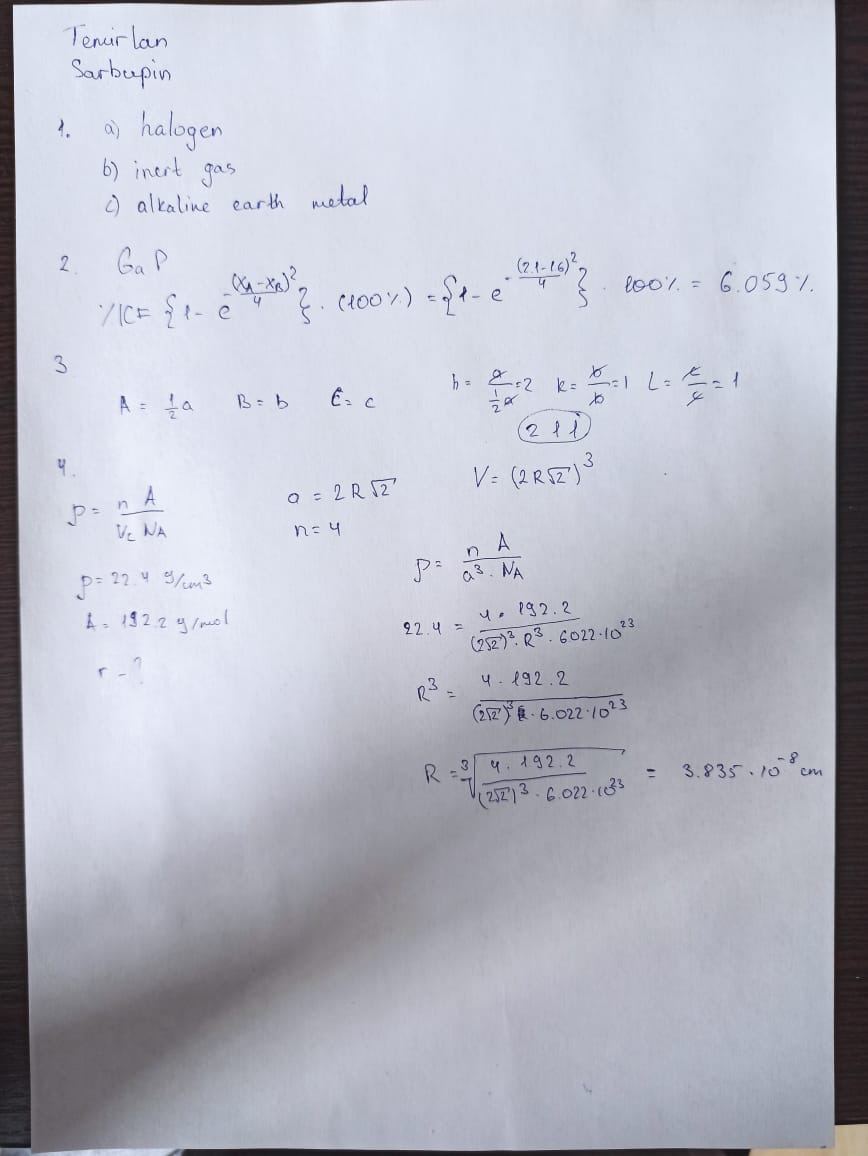 Temirlan
Sarbupin
1. a) halogen
b) inert gas
c) alkaline earth metal
2. GaP
%IC = {1 - e^(-(X_A - X_B)²/4)} · (100%) = {1 - e^(-(2.1-1.6)²/4)} · 100% = 6.059%.
3
A = 1/2 a B = b C = c h = a/(1/2 a) = 2 k = b/b = 1 L = c/c = 1
(2 1 1)
4.
ρ = n A / V_c N_A a = 2R√2 V = (2R√2)³
n = 4
ρ = n A / a³ · N_A
ρ = 22.4 g/cm³
A = 192.2 g/mol
22.4 = 4 · 192.2 / (2√2)³ · R³ · 6022·10²³
r - ?
R³ = 4 · 192.2 / (2√2)³ · 6.022·10²³
R = ³√(4 · 192.2 / (2√2)³ · 6.022·10²³) = 3.835 · 10⁻⁸ cm